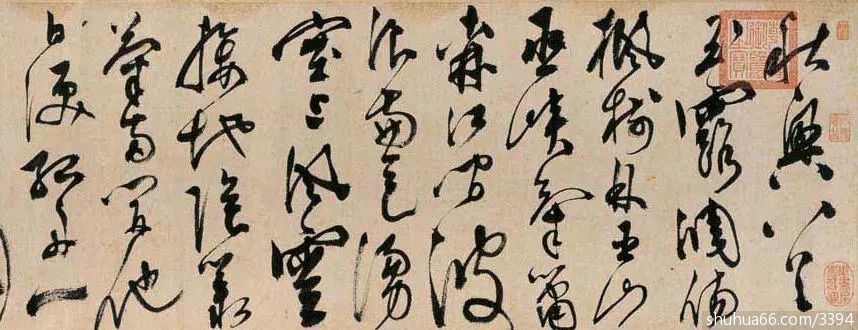 秋興八首
玉露凋傷
楓樹林巫山
巫峽氣蕭
森江間波
浪兼天湧
塞上風雲
接地陰叢
菊兩開他
日淚孤舟一
shuhua66.com/3394